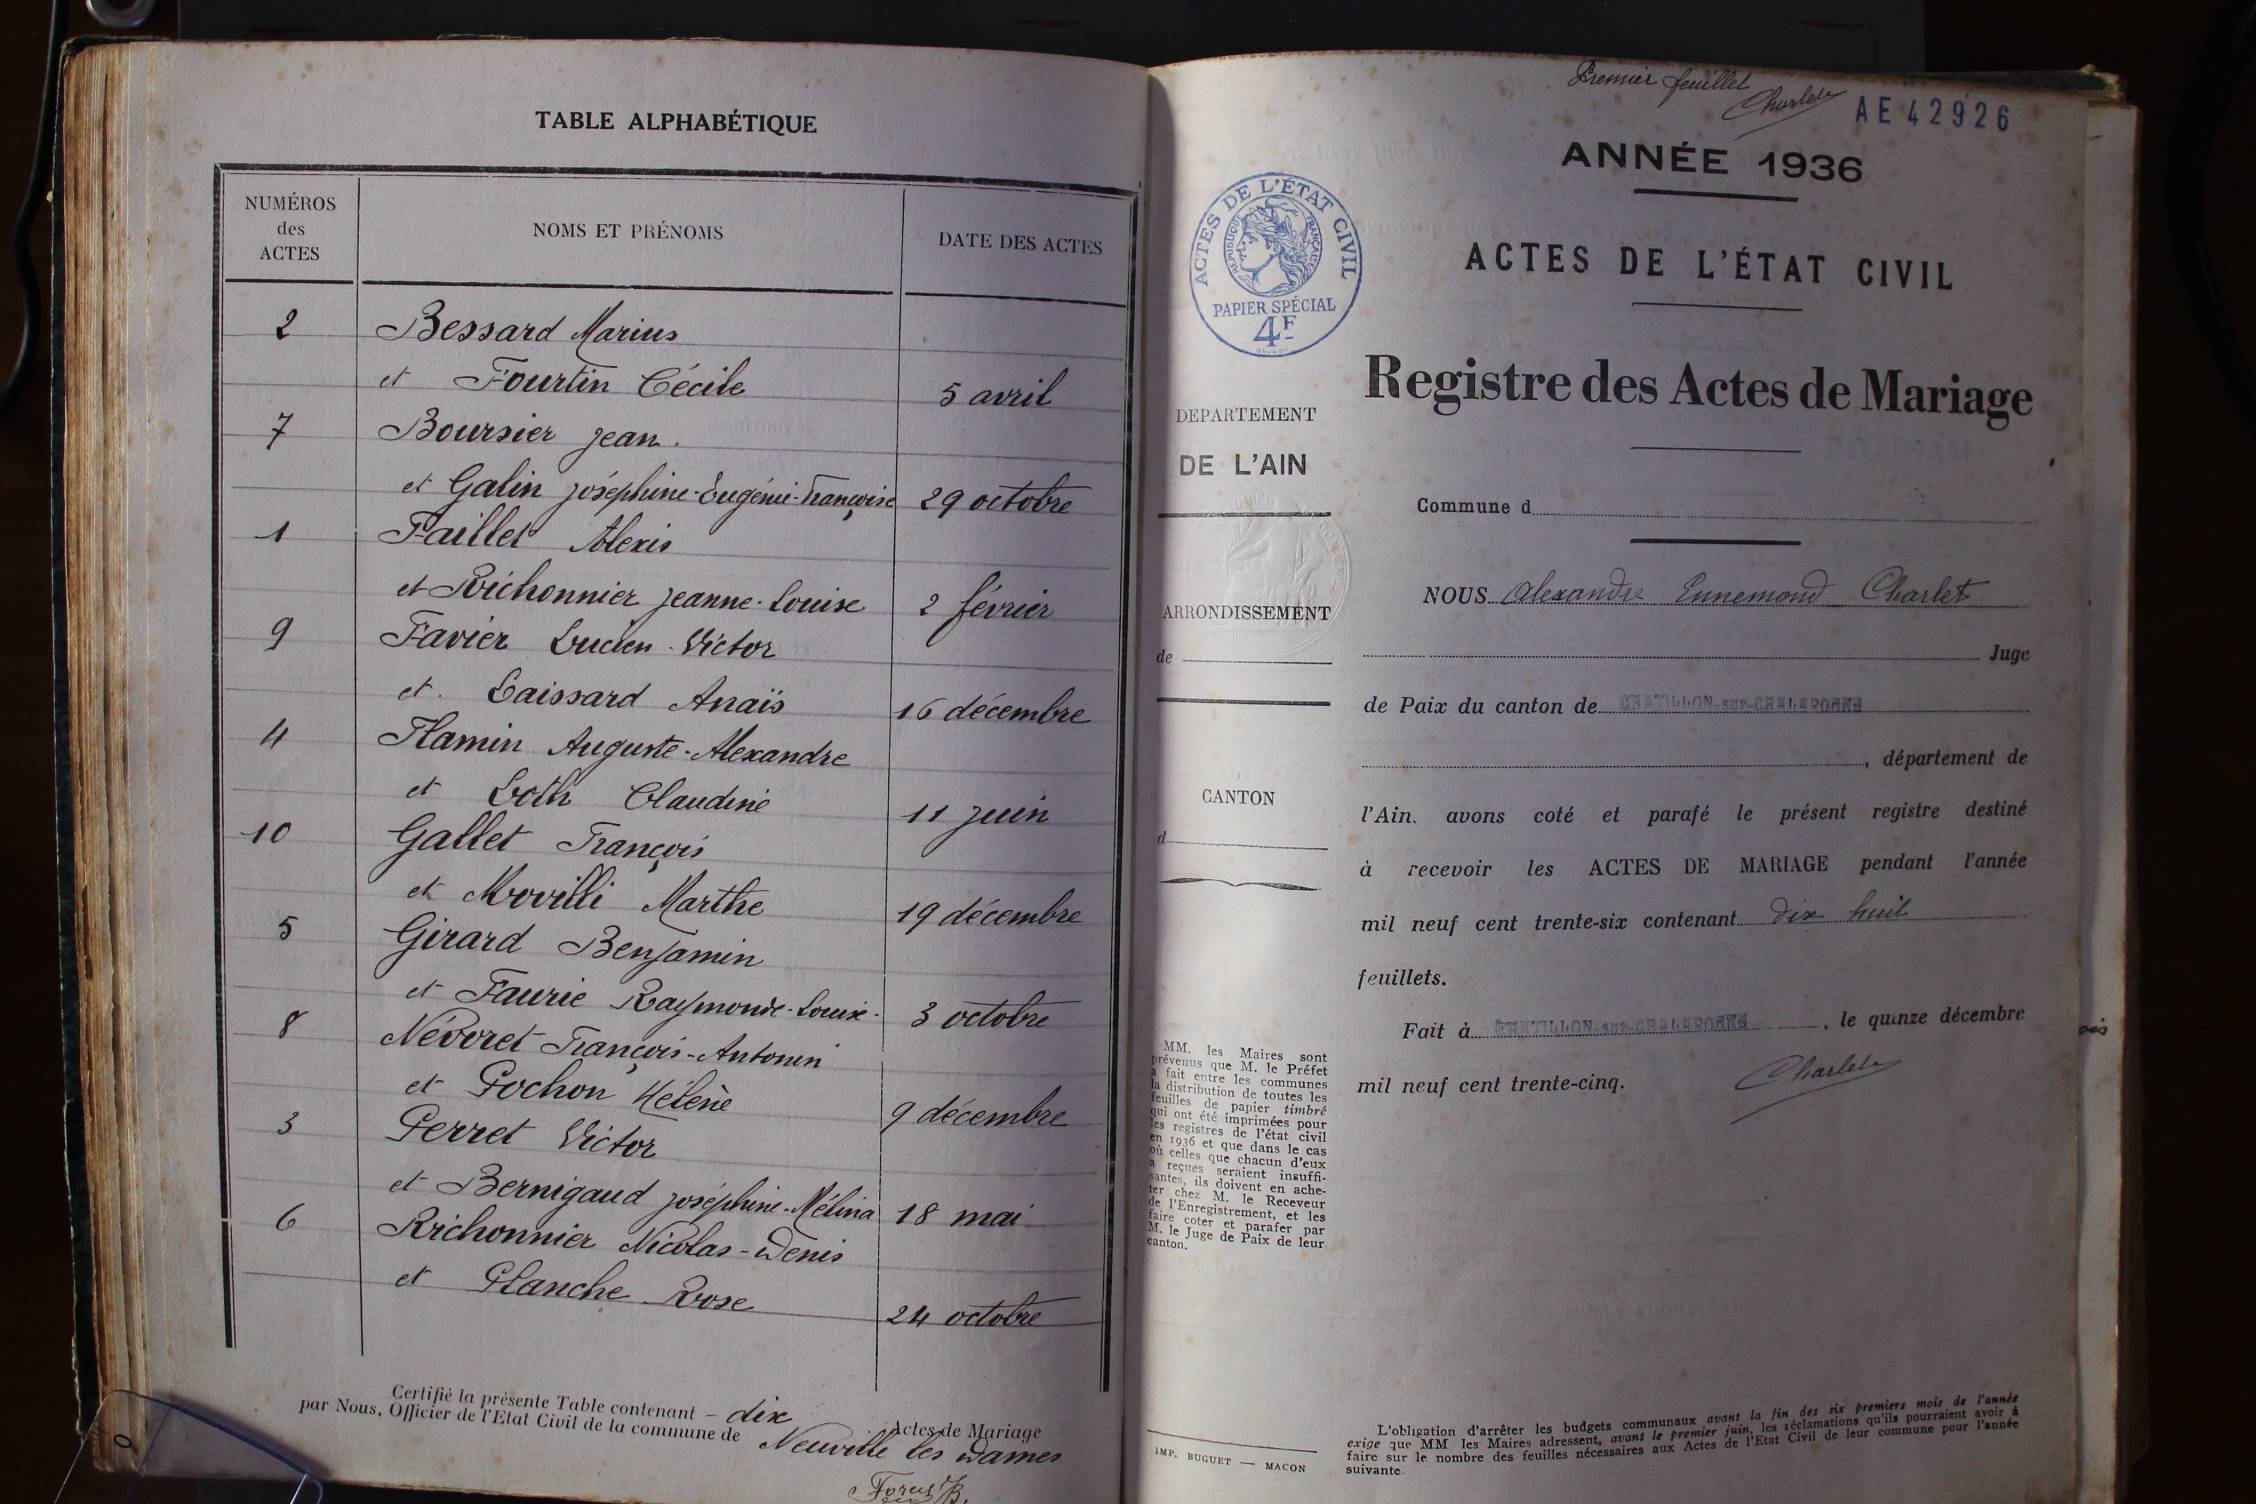 TABLE ALPHABÉTIQUE
NUMÉROS
des
ACTES
NOMS ET PRÉNOMS
DATE DES ACTES
2 Bessard Marius
et Fourtin Cécile 5 avril
7 Boursier Jean.
et Galin Joséphine-Eugénie-Françoise 29 octobre
1 Faillet Alexis
et Richonnier Jeanne-Louise 2 février
9 Favier Lucien-Victor
et. Laissard Anaïs 16 décembre
4 Flamin Auguste-Alexandre
et Loth Claudine 11 juin
10 Gallet François
et Movilli Marthe 19 décembre
5 Girard Benjamin
et Faurie Raymonde-Louise- 3 octobre
8 Névoret François-Antonin
et Pochon Hélène 9 décembre
3 Perret Victor
et Bernigaud Joséphine-Mélina 18 mai
6 Richonnier Nicolas-Denis
et Planche Rose 24 octobre
Certifié la présente Table contenant - dix Actes de Mariage
par Nous, Officier de l'Etat Civil de la commune de Neuville les Dames
Premier feuillet
Charlet
AE 42926
ANNÉE 1936
ACTES DE L'ÉTAT CIVIL
RÉPUBLIQUE FRANÇAISE
PAPIER SPÉCIAL
4F
ACTES DE L'ÉTAT CIVIL
Registre des Actes de Mariage
DEPARTEMENT
DE L'AIN
ARRONDISSEMENT
de
CANTON
d
MM. les Maires sont
prévenus que M. le Préfet
a fait entre les communes
la distribution de toutes les
feuilles de papier timbré
qui ont été imprimées pour
les registres de l'état civil
en 1936 et que dans le cas
où celles que chacun d'eux
a reçues seraient insuffi-
santes, ils doivent en ache-
ter chez M. le Receveur
de l'Enregistrement, et les
faire coter et parafer par
M. le Juge de Paix de leur
canton.
IMP. BUGUET — MACON
Commune d
NOUS Alexandre Ennemond Charlet
Juge
de Paix du canton de CHATILLON-sur-CHALARONNE
, département de
l'Ain. avons coté et parafé le présent registre destiné
à recevoir les ACTES DE MARIAGE pendant l'année
mil neuf cent trente-six contenant dix huit
feuillets.
Fait à CHATILLON-sur-CHALARONNE, le quinze décembre
mil neuf cent trente-cinq. Charlet
L'obligation d'arrêter les budgets communaux avant la fin des six premiers mois de l'année
exige que MM les Maires adressent, avant le premier juin, les réclamations qu'ils pourraient avoir à
faire sur le nombre des feuilles nécessaires aux Actes de l'Etat Civil de leur commune pour l'année
suivante.